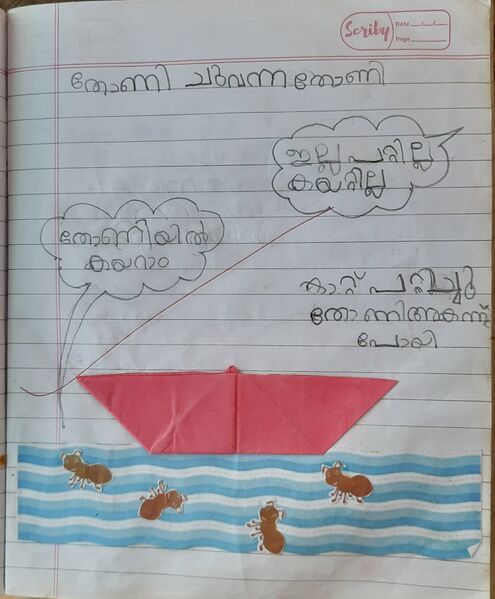 Scriby
Date __/__/__
Page
തോണി ചുവന്ന തോണി
ഇല്ല പറ്റില്ല
കയറ്റില്ല
തോണിയിൽ
കയറാം
കാറ്റ് പറ്റിച്ചു
തോണി അകന്ന്
പോലി